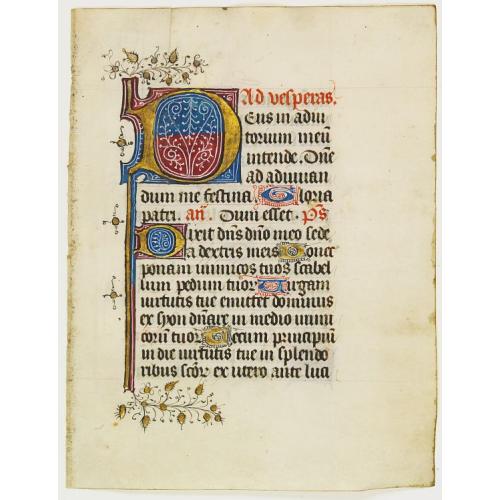 Ad vesperas.
Deus in adiu
torium meū
intende. Dñe
ad adiuuan
dum me festina Gloria
patri. añ. Dum esset. Ps
Dixit dñs dño meo sede
a dextris meis Donec
ponam inimicos tuos scabel
lum pedum tuor Uirgam
uirtutis tue emittet dominus
ex syon dñare in medio inimi
corū tuor Tecum principiū
in die uirtutis tue in splendo
ribus scōr ex utero ante luci